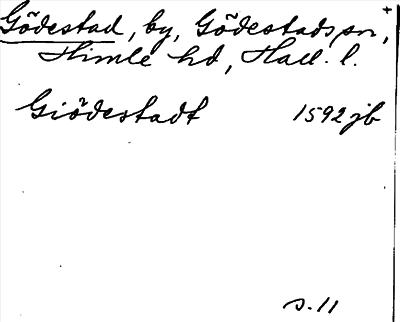 Gödestad, by, Gödestads sn, +
Himle hd, Hall. l.
Giödestadt 1592 jb
s. 11